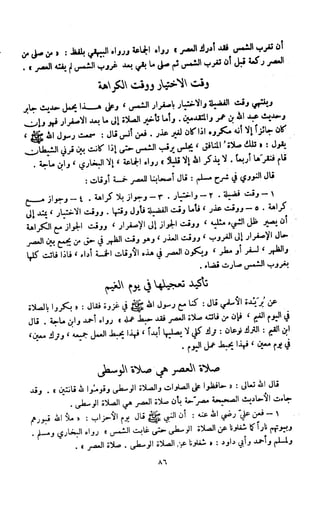 أن تغرب الشمس فقد أدرك العصر » رواه الجماعة ورواه البيهقي بلفظ : « من صلى من
العصر ركعة قبل أن تغرب الشمس ثم صلى ما بقي بعد غروب الشمس لم يفته العصر » .
وقت الاختيار ووقت الكراهة
وينتهي وقت الفضيلة والاختيار باصفرار الشمس ، وعلى هــذا يحمل حديث جابر
وحديث عبد الله بن عمر المتقدمين . وأما تأخير الصلاة إلى ما بعد الاصفرار فهو وإن
كان جائزاً إلا أنه مكروه إذا كان لغير عذر . فعن أنس قال : سمعت رسول الله ﷺ
يقول : « تلك صلاة المنافق ، يجلس يرقب الشمس حتى إذا كانت بين قرني الشيطان
قام فنقرها أربعاً ، لا يذكر الله إلا قليلا » رواه الجماعة ، إلا البخاري ، وابن ماجة .
قال النووي في شرح مسلم : قال أصحابنا للعصر خمسة أوقات :
١ - وقت فضيلة . ٢ - واختيار . ٣ - وجواز بلا كراهة . ٤ - وجواز مــع
كراهة . ٥ - ووقت عذر ، فأما وقت الفضيلة فأول وقتها . ووقت الاختيار ، يمتد إلى
أن يصير ظل الشيء مثليه ، ووقت الجواز إلى الاصفرار ، ووقت الجواز مع الكراهة
حال الاصفرار إلى الغروب ، ووقت العذر ، وهو وقت الظهر في حق من يجمع بين العصر
والظهر ، لسفر أو مطر ، ويكون العصر في هذه الأوقات الخمسة أداء ، فاذا فاتت كلها
بغروب الشمس صارت قضاء .
تأكيد تعجيلها في يوم الغيم
عن بُرَيْدة الأسلمي قال : كنا مع رسول الله ﷺ في غزوة فقال : « بكروا بالصلاة
في اليوم الغيم ، فإن من فاتته صلاة العصر فقد حبط عمله » رواه أحمد وابن ماجة . قال
ابن القيم : الترك نوعان : ترك كلي لا يصليها أبداً ، فهذا يحبط العمل جميعه ، وترك معين ،
في يوم معين ، فهذا يحبط عمل اليوم .
صلاة العصر هي صلاة الوسطى
قال الله تعالى : « حافظوا على الصلوات والصلاة الوسطى وقوموا لله قانتين » . وقد
جاءت الأحاديث الصحيحة مصرحة بأن صلاة العصر هي الصلاة الوسطى .
١ - فعن علي رضي الله عنه : أن النبي ﷺ قال يوم الأحزاب : « ملأ الله قبورهم
وبيوتهم ناراً كما شغلونا عن الصلاة الوسطى حتى غابت الشمس » رواه البخاري ومسلم .
ولمسلم وأحمد وأبي داود : « شغلونا عن الصلاة الوسطى . صلاة العصر » .
٨٦